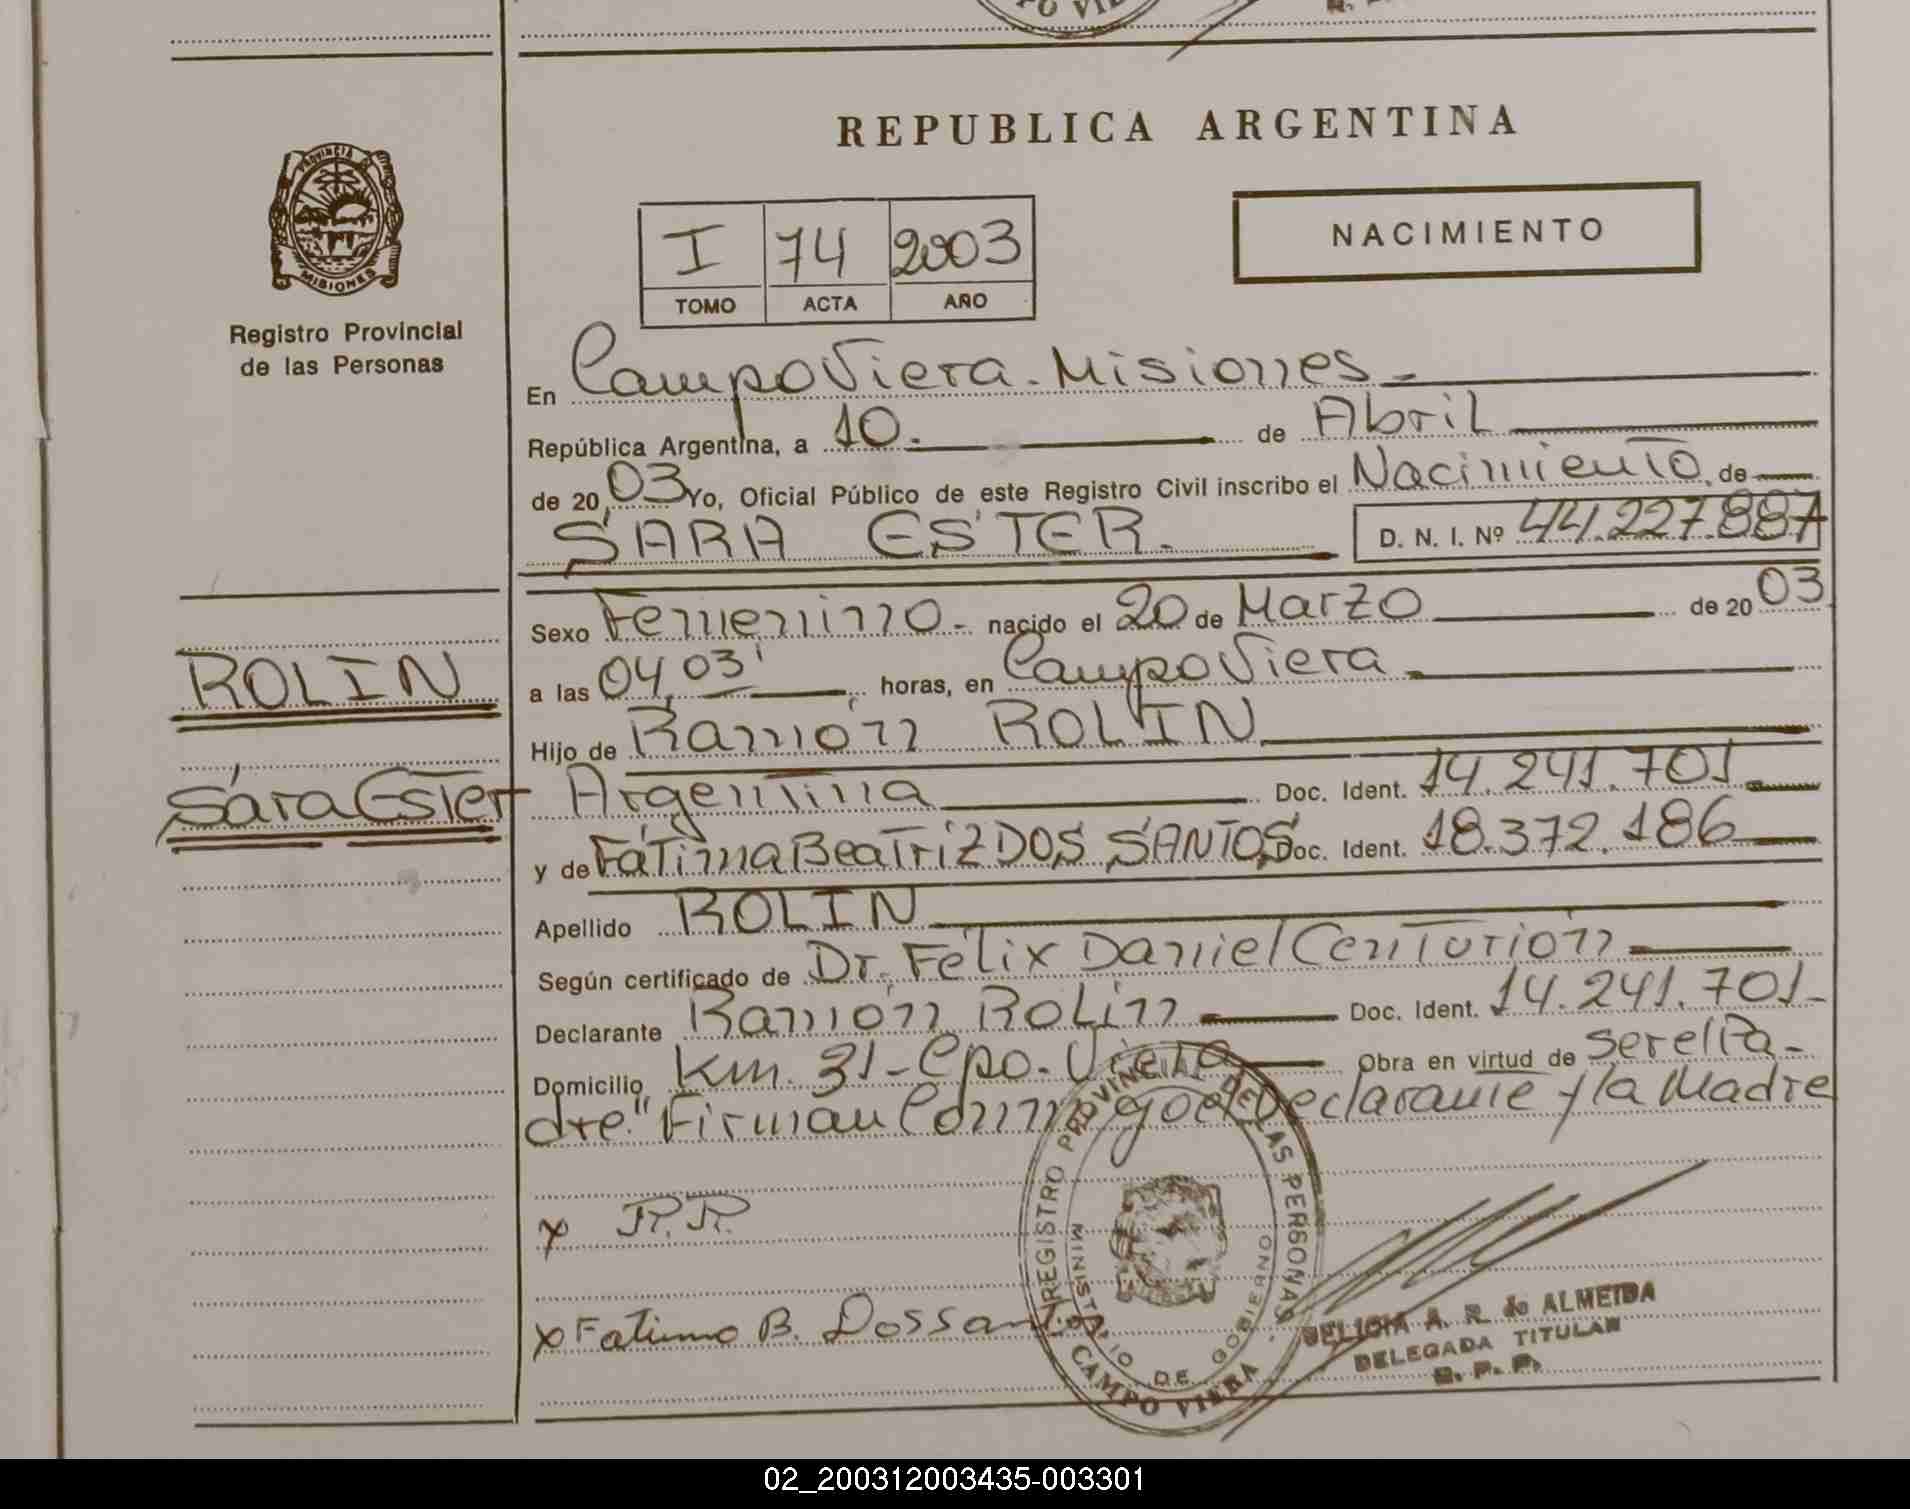 REPUBLICA ARGENTINA
PROVINCIA DE
MISIONES
Registro Provincial
de las Personas
I 74 2003
TOMO ACTA AÑO
NACIMIENTO
En Campo Viera - Misiones -
República Argentina, a 10. de Abril
de 20 03 Yo, Oficial Público de este Registro Civil inscribo el Nacimiento de
SARA ESTER. D. N. I. Nº 44.227.887
Sexo Femenino - nacido el 20 de Marzo de 20 03
ROLIN
a las 04,03' horas, en Campo Viera
Hijo de Ramón ROLIN
Sara Ester
Argentina Doc. Ident. 14.241.701
y de Fátima Beatriz DOS SANTOS Doc. Ident. 18.372.186
Apellido ROLIN
Según certificado de Dr. Félix Daniel Centurión
Declarante Ramón Rolin Doc. Ident. 14.241.701-
Domicilio Km. 31 - Cpo. Viera Obra en virtud de ser el Pa-
dre." Firman Conmigo el Declarante y la Madre
x R.R.
x Fatima B. Dossantos
REGISTRO PROVINCIAL DE LAS PERSONAS
MINISTERIO DE GOBIERNO
CAMPO VIERA
DELICIA A. R. de ALMEIDA
DELEGADA TITULAR
R. P. P.
02_200312003435-003301